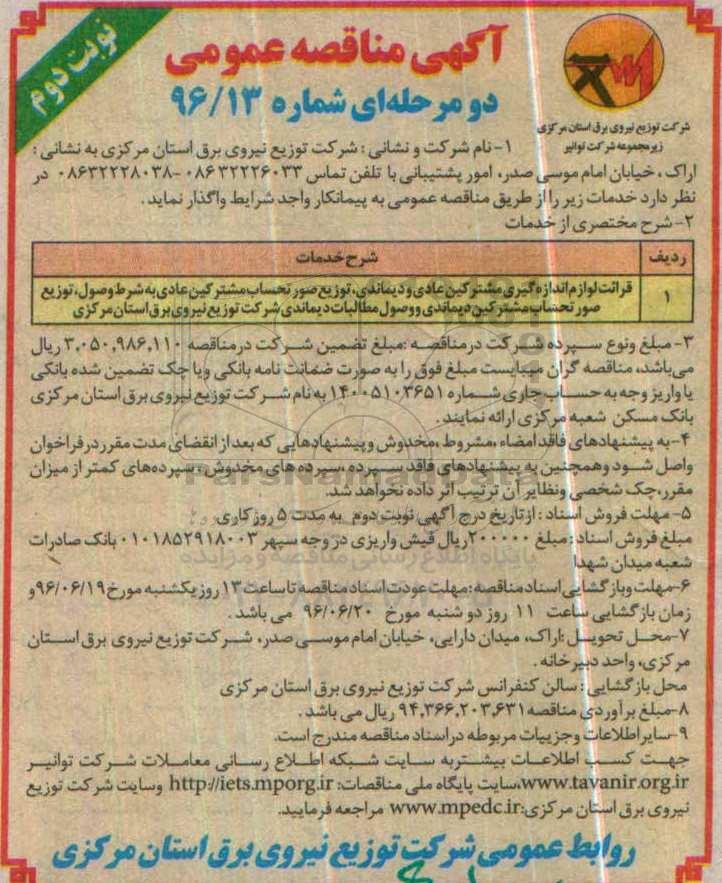 نوبت دوم
آگهی مناقصه عمومی
دو مرحله‌ای شماره ۹۶/۱۳
شرکت توزیع نیروی برق استان مرکزی
زیرمجموعه شرکت توانیر
۱- نام شرکت و نشانی : شرکت توزیع نیروی برق استان مرکزی به نشانی :
اراک ، خیابان امام موسی صدر، امور پشتیبانی با تلفن تماس ۰۸۶۳۲۲۲۶۰۳۳ -۰۸۶۳۲۲۲۸۰۳۸ در
نظر دارد خدمات زیر را از طریق مناقصه عمومی به پیمانکار واجد شرایط واگذار نماید .
۲- شرح مختصری از خدمات
ردیف شرح خدمات
۱ قرائت لوازم اندازه گیری مشترکین عادی و دیماندی، توزیع صورتحساب مشترکین عادی به شرط وصول، توزیع
صورتحساب مشترکین دیماندی و وصول مطالبات دیماندی شرکت توزیع نیروی برق استان مرکزی
۳- مبلغ ونوع سپرده شرکت درمناقصه :مبلغ تضمین شرکت درمناقصه ۳,۰۵۰,۹۸۶,۱۱۰ ریال
می‌باشد، مناقصه گران میبایست مبلغ فوق را به صورت ضمانت نامه بانکی ویا چک تضمین شده بانکی
یا واریز وجه به حساب جاری شماره ۱۴۰۰۵۱۰۳۶۵۱ به نام شرکت توزیع نیروی برق استان مرکزی
بانک مسکن شعبه مرکزی ارائه نمایند .
۴- به پیشنهادهای فاقد امضاء ،مشروط ،مخدوش وپیشنهادهایی که بعد از انقضای مدت مقرر در فراخوان
واصل شود وهمچنین به پیشنهادهای فاقد سپرده ،سپرده های مخدوش ، سپرده‌های کمتر از میزان
مقرر،چک شخصی ونظایر آن ترتیب اثر داده نخواهد شد.
ParsNamadData
۵- مهلت فروش اسناد : از تاریخ درج آگهی نوبت دوم به مدت ۵ روز کاری
مبلغ فروش اسناد : مبلغ ۲۰۰۰۰۰ ریال فیش واریزی در وجه سپهر ۰۱۰۱۸۵۲۹۱۸۰۰۳ بانک صادرات
پایگاه اطلاع رسانی مناقصه و مزایده
شعبه میدان شهدا
۶-مهلت وبازگشایی اسناد مناقصه :مهلت عودت اسناد مناقصه تا ساعت ۱۳ روز یکشنبه مورخ ۹۶/۰۶/۱۹و
زمان بازگشایی ساعت ۱۱ روز دو شنبه مورخ ۹۶/۰۶/۲۰ می باشد .
۷-محل تحویل :اراک، میدان دارایی، خیابان امام موسی صدر، شرکت توزیع نیروی برق استان
مرکزی، واحد دبیرخانه .
محل بازگشایی : سالن کنفرانس شرکت توزیع نیروی برق استان مرکزی
۸-مبلغ برآوردی مناقصه ۹۴,۳۶۶,۲۰۳,۶۳۱ ریال می باشد .
۹-سایر اطلاعات وجزییات مربوطه در اسناد مناقصه مندرج است.
جهت کسب اطلاعات بیشتربه سایت شبکه اطلاع رسانی معاملات شرکت توانیر
www.tavanir.org.ir،سایت پایگاه ملی مناقصات: http://iets.mporg.ir وسایت شرکت توزیع
نیروی برق استان مرکزی:www.mpedc.ir مراجعه فرمایید.
روابط عمومی شرکت توزیع نیروی برق استان مرکزی